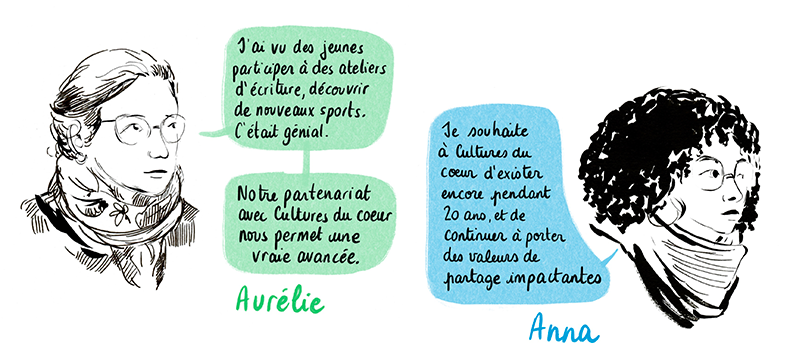 J'ai vu des jeunes
participer à des ateliers
d'écriture, découvrir
de nouveaux sports.
C'était génial.
Notre partenariat
avec Cultures du coeur
nous permet une
vraie avancée.
Aurélie
Je souhaite
à Cultures du
coeur d'exister
encore pendant
20 ans, et de
continuer à porter
des valeurs de
partage impactantes
Anna